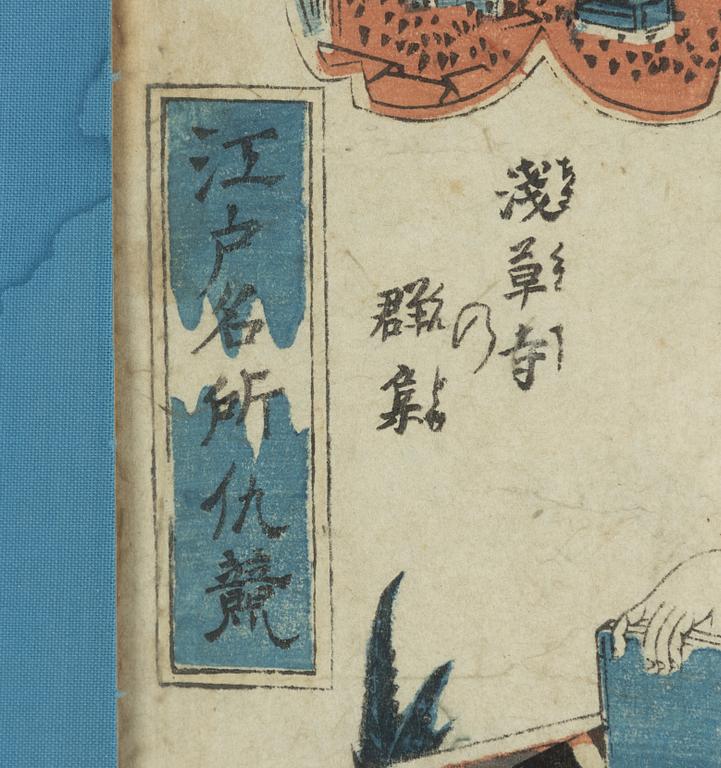 淺草寺
の
群集
江戸名所仇競